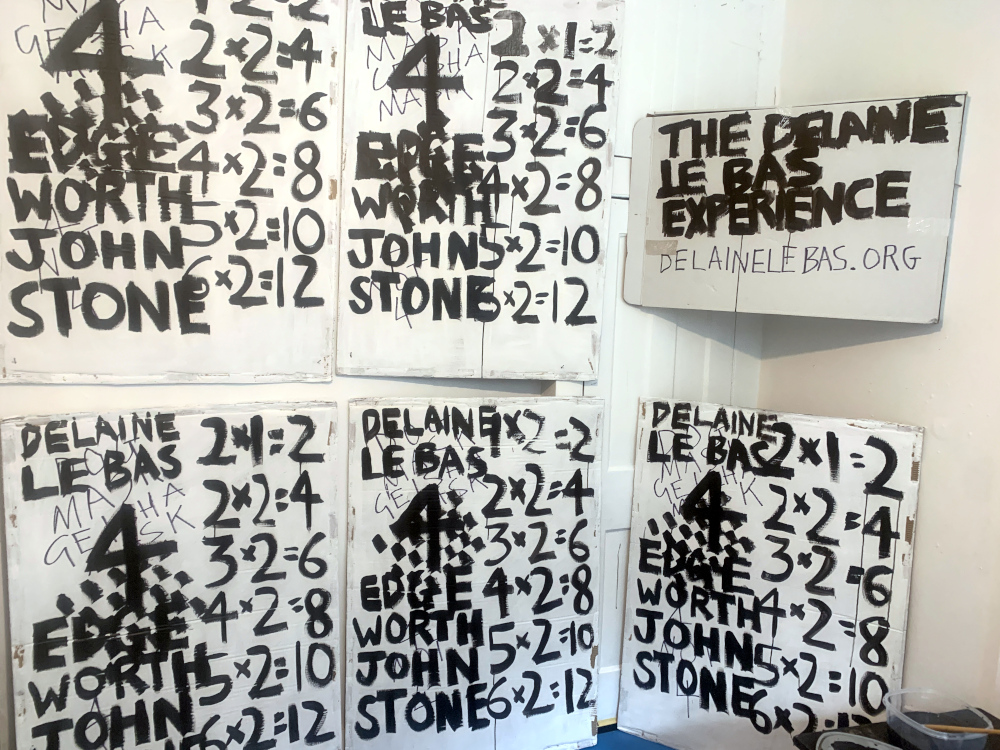 4
EDGE
WORTH
JOHN
STONE
2×2=4
3×2=6
4×2=8
5×2=10
6×2=12
LE BAS
4
EDGE
WORTH
JOHN
STONE
2×1=2
2×2=4
3×2=6
4×2=8
5×2=10
6×2=12
THE DELAINE
LE BAS
EXPERIENCE
DELAINELEBAS.ORG
DELAINE
LE BAS
MASHA
GE SK
4
EDGE
WORTH
JOHN
2×1=2
2×2=4
3×2=6
4×2=8
5×2=10
6×2=12
DELAINE
LE BAS
4
EDGE
WORTH
JOHN
STONE
1×2=2
2×2=4
3×2=6
4×2=8
5×2=10
6×2=12
DELAINE
LE BAS
4
EDGE
WORTH
JOHN
STONE
2×1=2
2×2=4
3×2=6
4×2=8
5×2=10
6×2=12